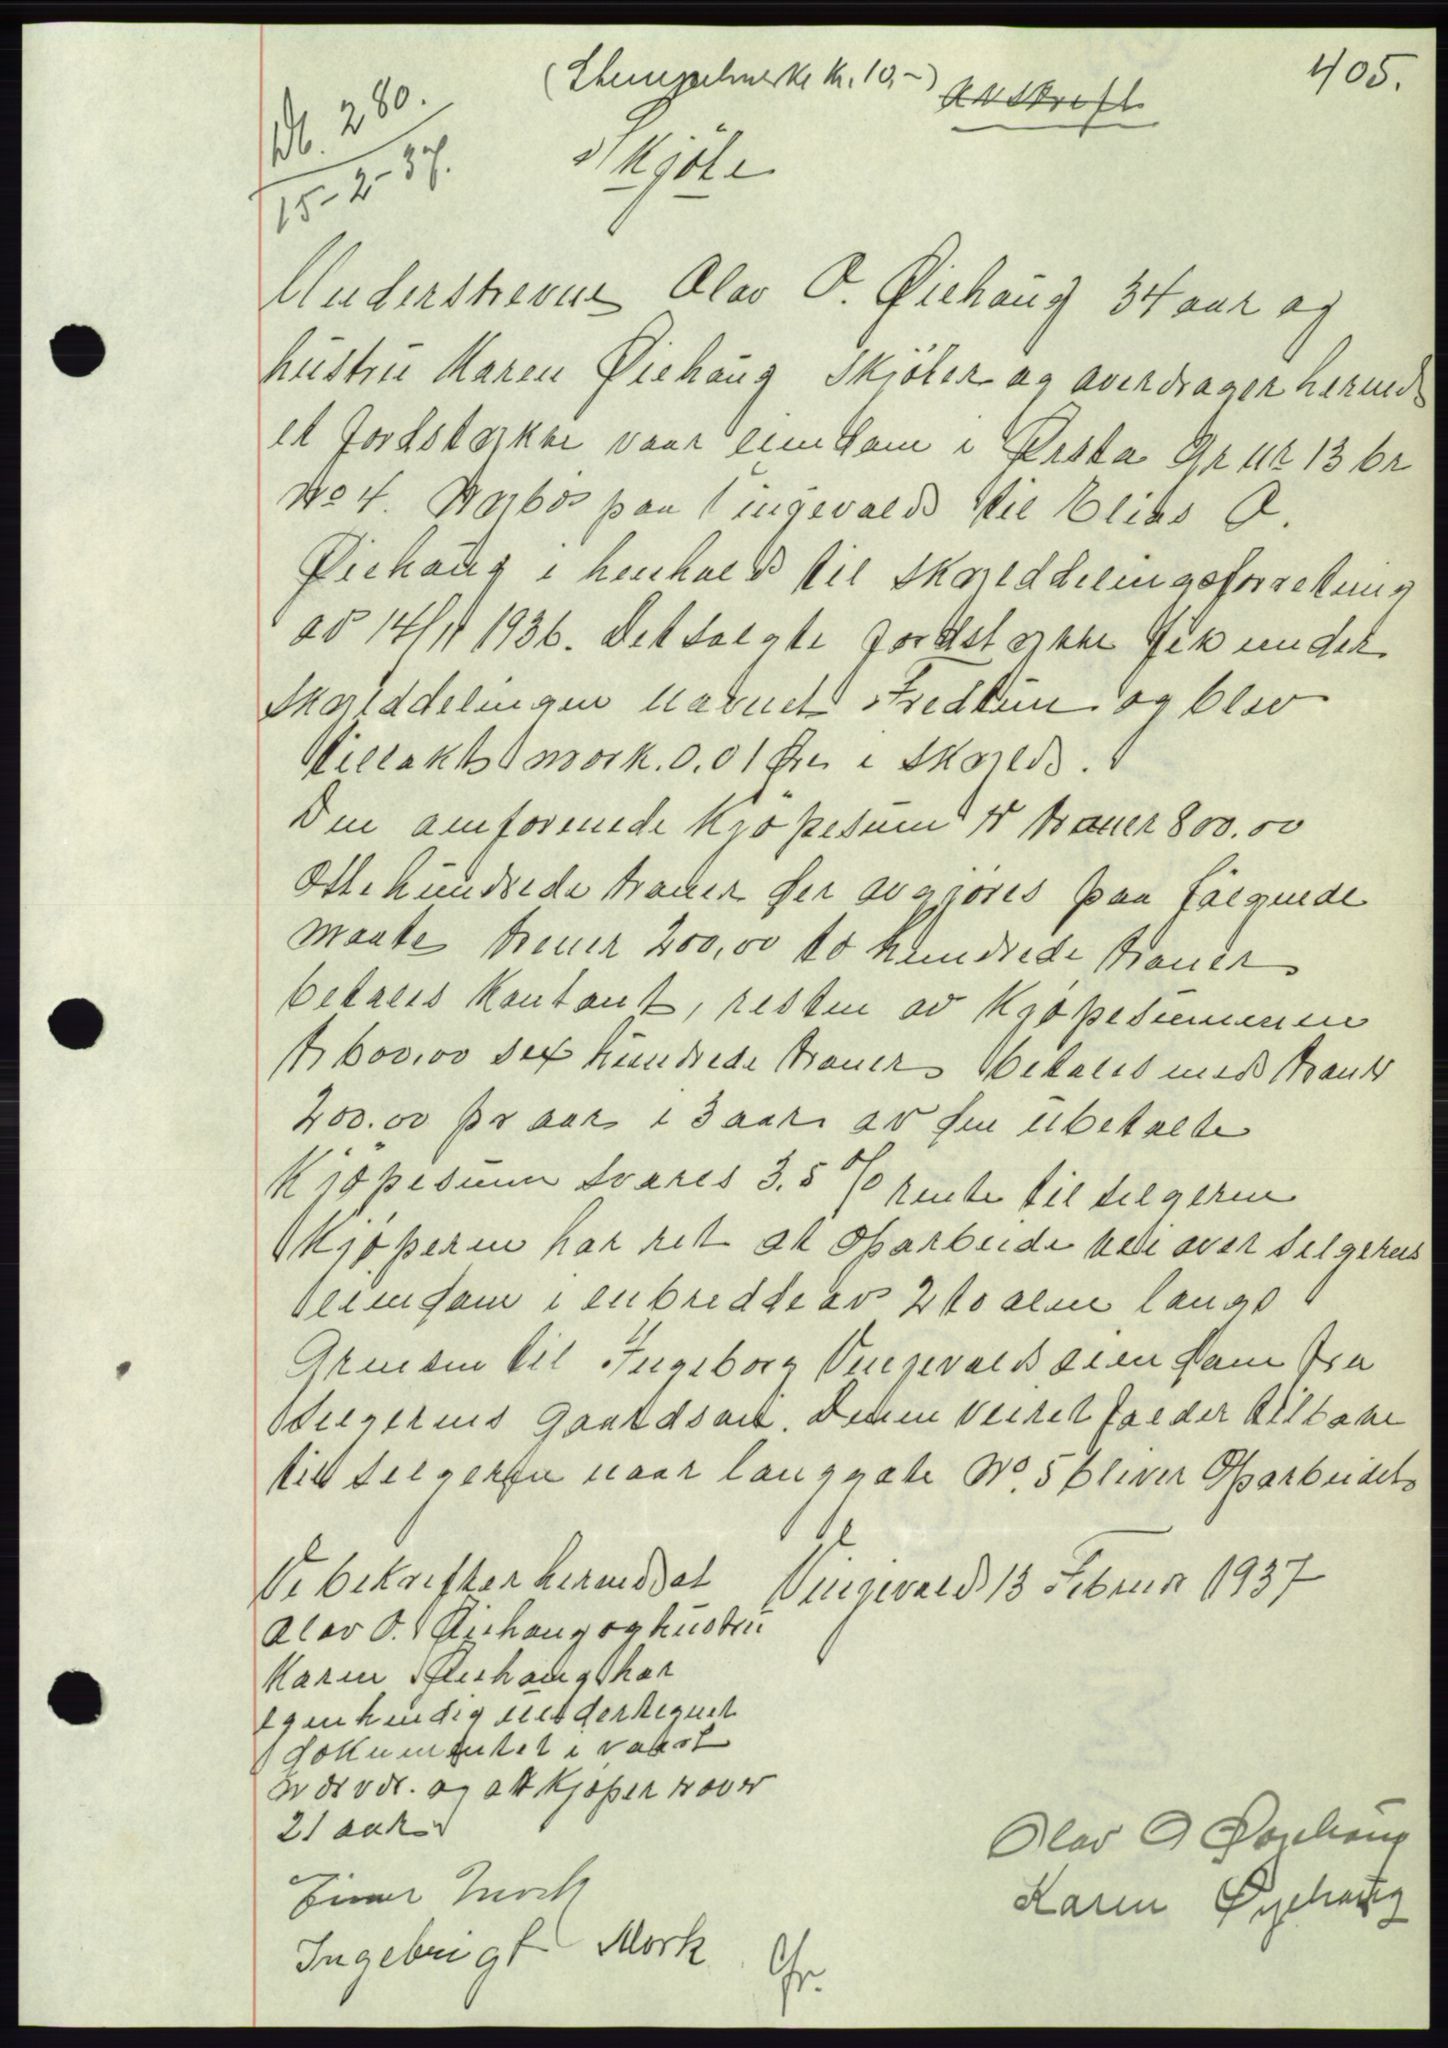 405.
(Stempelmerke kr. 10,-) Avskrift
Db. 280.
15-2-37.
Skjöte
Underskrevne Olav O. Øiehaug 34 aar og
hustru Karen Øiehaug skjöter og overdrager hermed
et jordstykke vaar eiendom i Ørsta Gr nr 13 br
No 4. paa Vingevald til Elias O.
Øiehaug i henhold til skylddelingsforretning
av 14/11 1936. Det solgte jordstykke fik under
skylddelingen navnet Fredtun og blev
tillakt mork. 0.01 Øre i skyld.
Den omforenede Kjöpesum er kroner 800.00
Otte hundrede kroner der avgjöres paa fölgende
maate kroner 200,00 to hundrede kroner
betales kontant, resten av Kjöpesummen
kr 600,00 sex hundrede kroner betales med kroner
200.00 pr aar i 3 aar av den ubetalte
Kjöpesum svares 3.5 % rente til selgeren
Kjöperen har ret at Oparbeide vei over selgerens
eiendom i en bredde av 2 to alen langs
Grensen til Ingeborg Vingevalds eiendom fra
selgerens Gaardsvei. Denne veiret falder tilbake
til selgeren naar langgate No. 5 bliver Oparbeidet
Vi bekrefter hermed at
Olav O. Øiehaug og hustru
Karen Øiehaug har
egenhendig undertegnet
dokumentet i vaart
nærvær. og at Kjöper er over
21 aar
Vingevald 13 Februar 1937
Olav O Øyehaug
Karen Øyehaug
Einar Mork
Ingebrigt Mork
Gr.